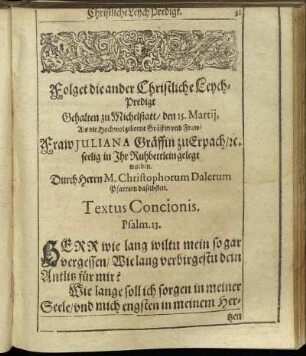 Christliche Leych Predigt. 31
Folget die ander Christliche Leych-
Predigt
Gehalten zu Michelstatt/ den 15. Martij,
Als die Hochwolgeborne Gräffin und Fraw/
Fraw JULIANA Gräffin zu Erpach/ꝛc.
seelig in Ihr Ruhbettlein gelegt
worden.
Durch Herrn M. Christophorum Dalerum
Pfarrern daselbsten.
Textus Concionis.
Psalm. 13.
HERR wie lang wiltu mein so gar
vergessen/ Wie lang verbirgestu dein
Antlitz für mir?
Wie lange soll ich sorgen in meiner
Seele/ vnd mich engsten in meinem Her-
tzen